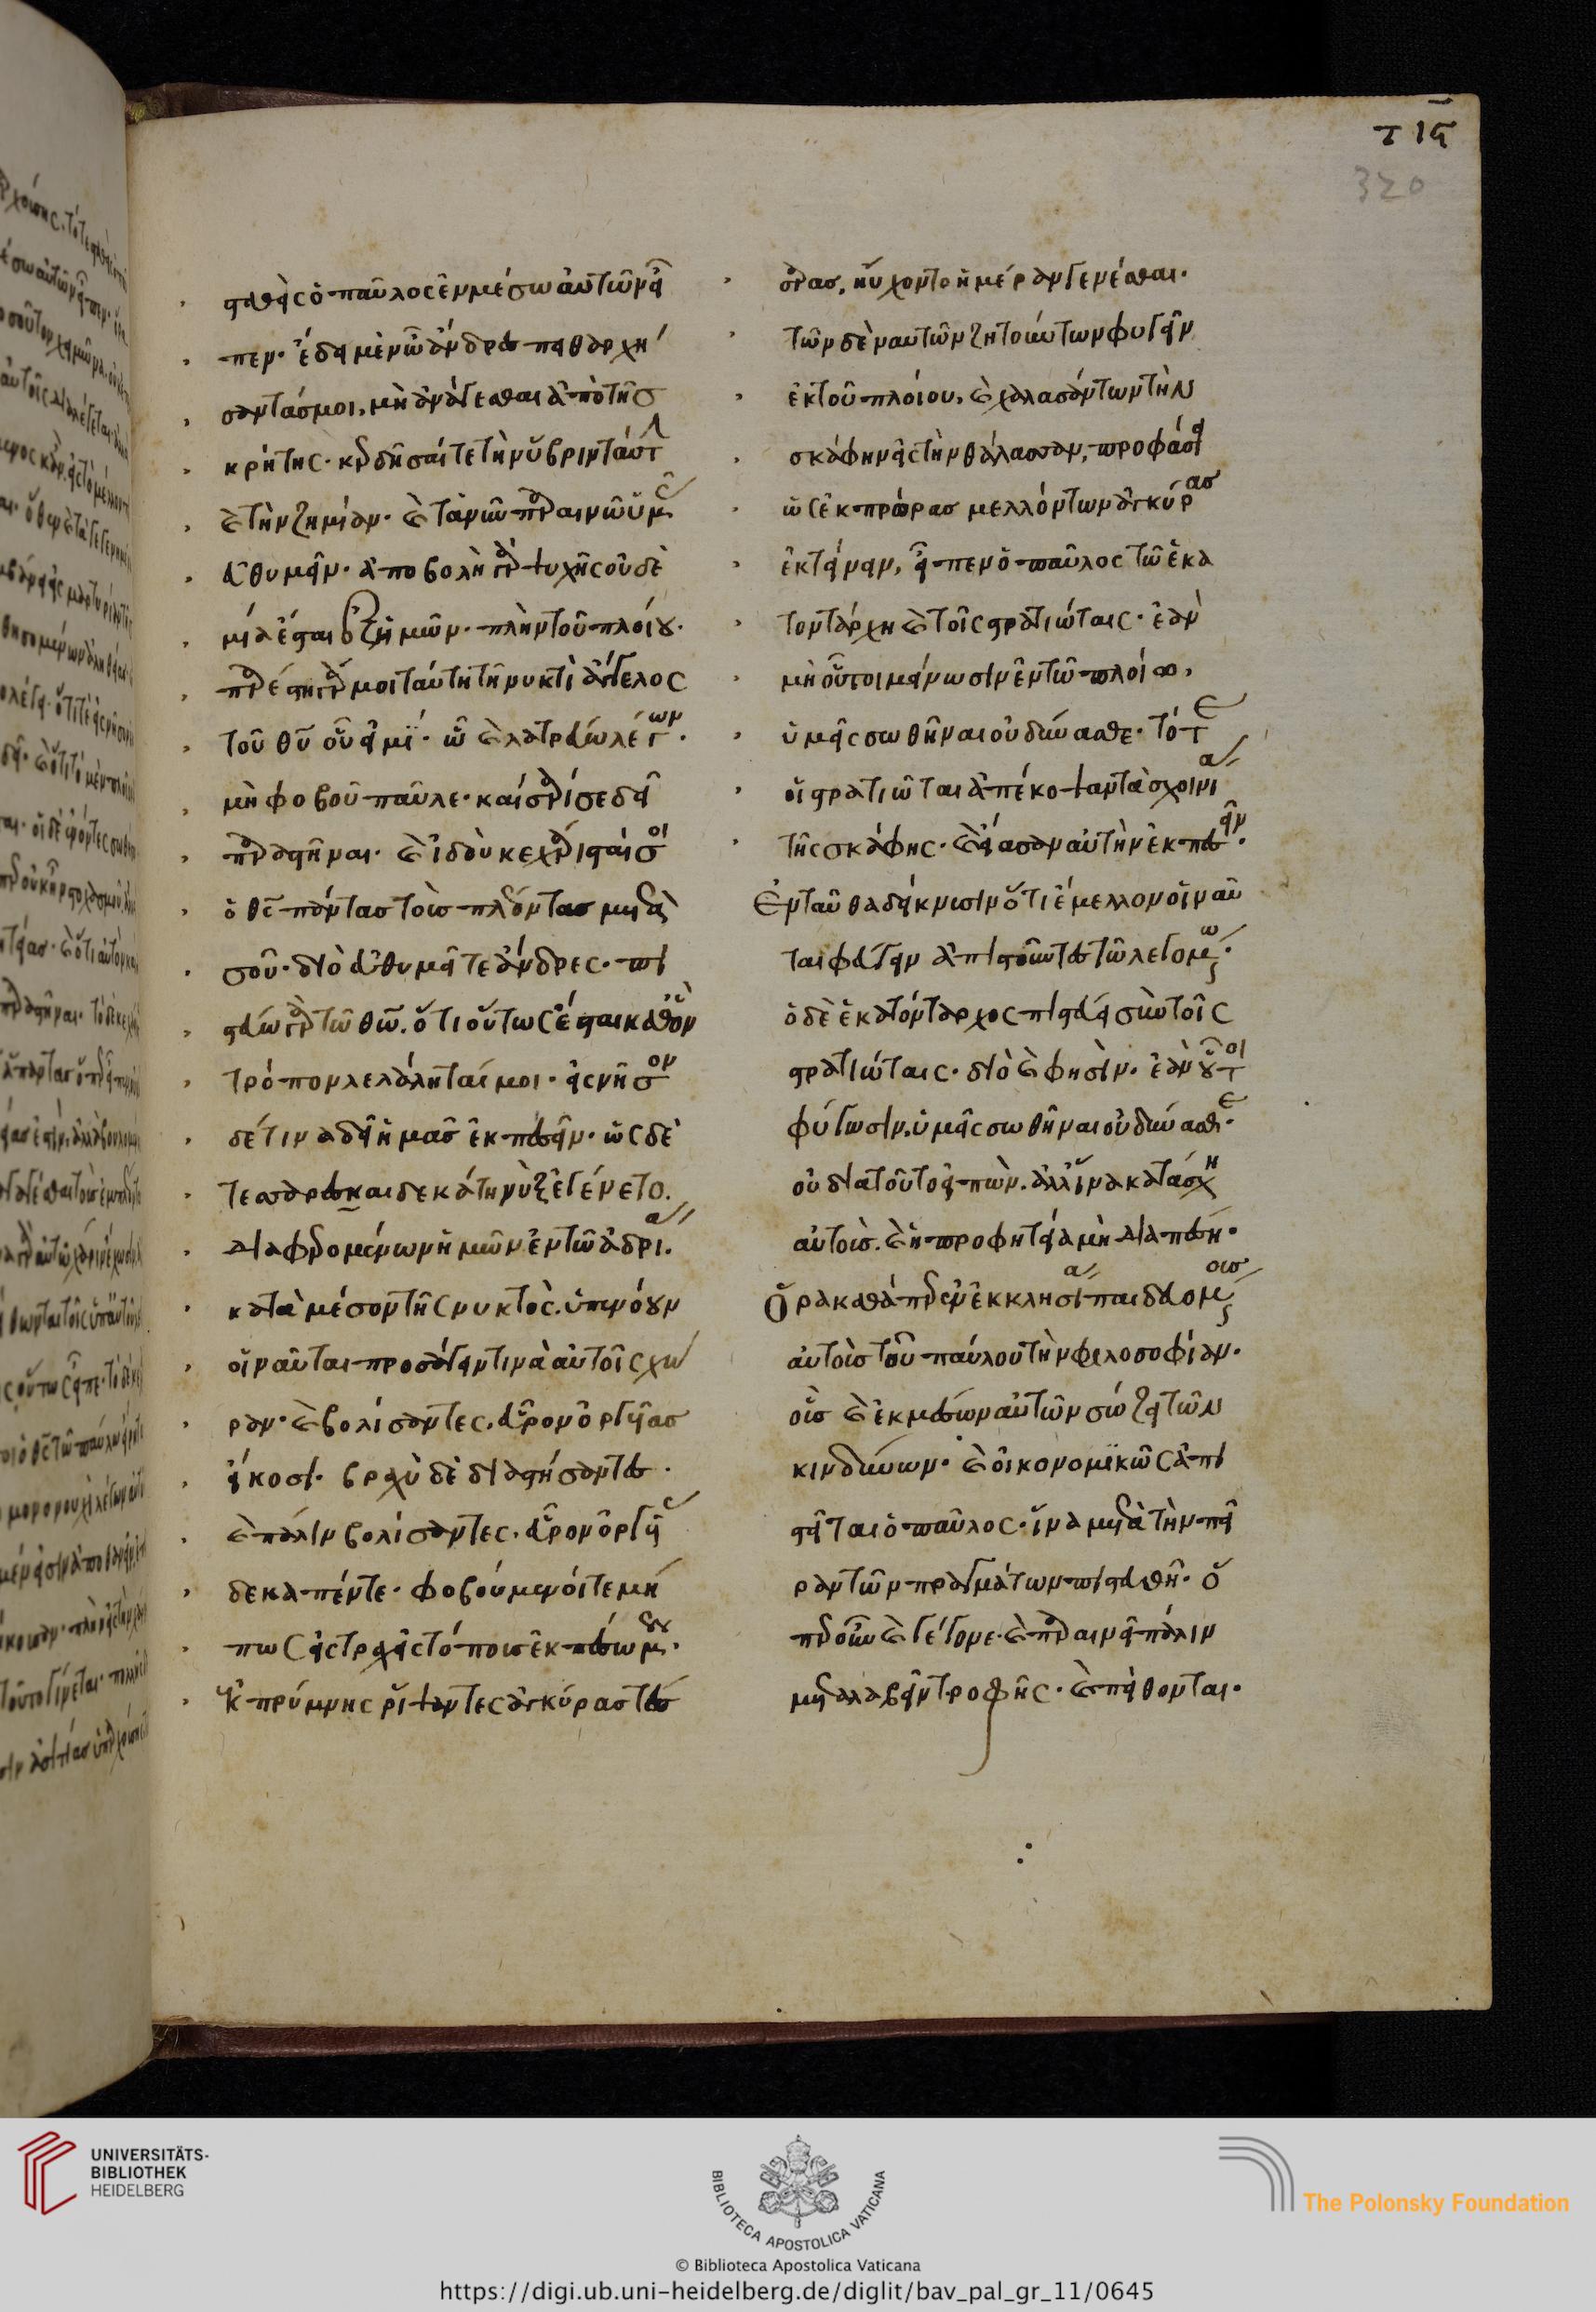 τιϛ
320
σταθεὶς ὁ παῦλος ἐν μέσω αὐτῶν εἶ
πεν· ἔδει μὲν ὦ ἄνδρες πειθαρχή
σαντάς μοι, μὴ ἀνάγεσθαι ἀπὸ τῆσ
κρήτης· κερδῆσαί τε τὴν ὕβριν ταύτ
καὶ τὴν ζημίαν· καὶ τανῦν παραινῶ ὑμᾶς
εὐθυμεῖν· ἀποβολὴ γὰρ ψυχῆς οὐδε
μία ἔσται ἐξ ἡμῶν· πλὴν τοῦ πλοίου·
παρέστη γάρ μοι ταύτη τῆ νυκτὶ ἄγγελος
τοῦ θυ οὗ εἰμϊ· ὧ καὶ λατρεύω λέγων·
μὴ φοβοῦ παῦλε· καίσαρί σε δεῖ
παραστῆναι· καὶ ἰδοὺ κεχάρισταί σοι
ὁ θς πάντασ τοὺσ πλέοντασ μετὰ
σοῦ· διὸ εὐθυμεῖτε ἄνδρες· πι
στεύω γὰρ τῶ θω· ὅτι οὕτως ἔσται καθ' ὃν
τρόπον λελάληταί μοι· εἰς νῆσον
δέ τινα δεῖ ἡμᾶσ ἐκπεσεῖν· ὡς δὲ
τεσσαρεσκαιδεκάτη νὺξ ἐγένετο.
διαφερομένων ἡμῶν ἐν τῶ ἀδρία.
κατὰ μέσον τῆς νυκτὸς. ὑπενόουν
οἱ ναῦται προσάγειν τινὰ αὐτοῖς χώ
ραν· καὶ βολίσαντες. εὗρον ὀργυιὰσ
εἴκοσι· βραχὺ δὲ διαστήσαντες·
καὶ πάλιν βολίσαντες. εὗρον ὀργυιὰς
δεκαπέντε· φοβούμενοί τε μή
πως εἰς τραχεῖς τόπουσ ἐκπέσωμεν·
ἐκ πρύμνης ῥίψαντες ἀγκύρασ τέσ
σαρασ, ηὔχοντο ἡμέραν γενέσθαι·
τῶν δὲ ναυτῶν ζητούντων φυγεῖν
ἐκ τοῦ πλοίου, καὶ χαλασάντων τὴν
σκάφην εἰς τὴν θάλασσαν, προφάσει
ὡς ἐκ πρώρασ μελλόντων ἀγκύρασ
ἐκτείνειν, εἶπεν ὁ παῦλος τῶ ἑκα
τοντάρχη καὶ τοῖς στρατιώταις· ἐὰν
μὴ οὗτοι μείνωσιν ἐν τῶ πλοίω,
ὑμεῖς σωθῆναι οὐ δύνασθε· τότε
οἱ στρατιῶται ἀπέκοψαν τὰ σχοινία
τῆς σκάφης· καὶ εἴασαν αὐτὴν ἐκπεσεῖν·
Ἐνταῦθα δείκνυσιν ὅτι ἔμελλον οἱ ναῦ
ται φεύγειν ἀπιστοῦντες τῶ λεγομένω·
ὁ δὲ ἑκατόνταρχος πιστεύει σὺν τοῖς
στρατιώταις· διὸ καὶ φησὶν· ἐὰν οὗτοι
φύγωσιν. ὑμεῖς σωθῆναι οὐ δύνασθε·
οὐ διὰ τοῦτο εἰπὼν. ἀλλ' ἵνα κατάσχη
αὐτοὺσ. καὶ ἡ προφητεία μὴ διαπέση·
Ὅρα καθάπερ ἐν ἐκκλησία παιδευομένουσ
αὐτοὺσ τοῦ παύλου τὴν φιλοσοφίαν·
οὓσ καὶ ἐκ μέσων αὐτῶν σώζει τῶν
κινδύνων· καὶ οἰκονομϊκῶς ἀπι
στεῖται ὁ παῦλος· ἵνα μετὰ τὴν πεῖ
ραν τῶν πραγμάτων πιστευθῆ· ὅ
περ οὖν καὶ γέγονε· καὶ παραινεῖ πάλιν
μεταλαβεῖν τροφῆς· καὶ πείθονται·
UNIVERSITÄTS-
BIBLIOTHEK
HEIDELBERG
BIBLIOTECA APOSTOLICA VATICANA
The Polonsky Foundation
© Biblioteca Apostolica Vaticana
https://digi.ub.uni-heidelberg.de/diglit/bav_pal_gr_11/0645